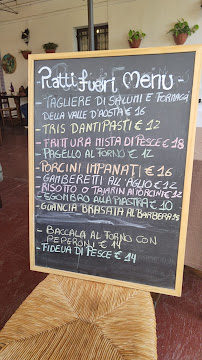 Piatti fuori Menu
- TAGLIERE DI SALUMI E FORMAGGI
DELLA VALLE D'AOSTA € 16
- TRIS D'ANTIPASTI € 12
- FRITTURA MISTA DI PESCE € 18
- PAGELLO AL FORNO € 12
PORCINI IMPANATI € 16
- GAMBERETTI ALL'AGLIO € 12
- RISOTTO O TAJARIN AI PORCINI € 12
- SGOMBRO ALLA PIASTRA € 10
- GUANCIA BRASATA AL BARBERA 15
- BACCALÀ AL FORNO CON
PEPERONI € 14
- FIDEUA DI PESCE € 14